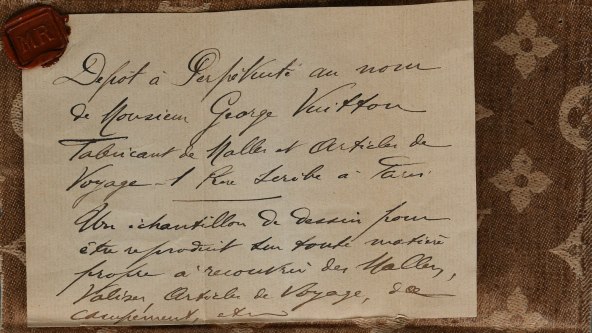 MR
Depot à Perpétuité au nom
de Monsieur George Vuitton
Fabricant de Malles et Articles de
Voyage - 1 Rue Scribe à Paris
Un échantillon de dessin pour
être reproduit sur toute matière
propre à recouvrir des Malles,
Valises, Articles de Voyage, de
campement, etc